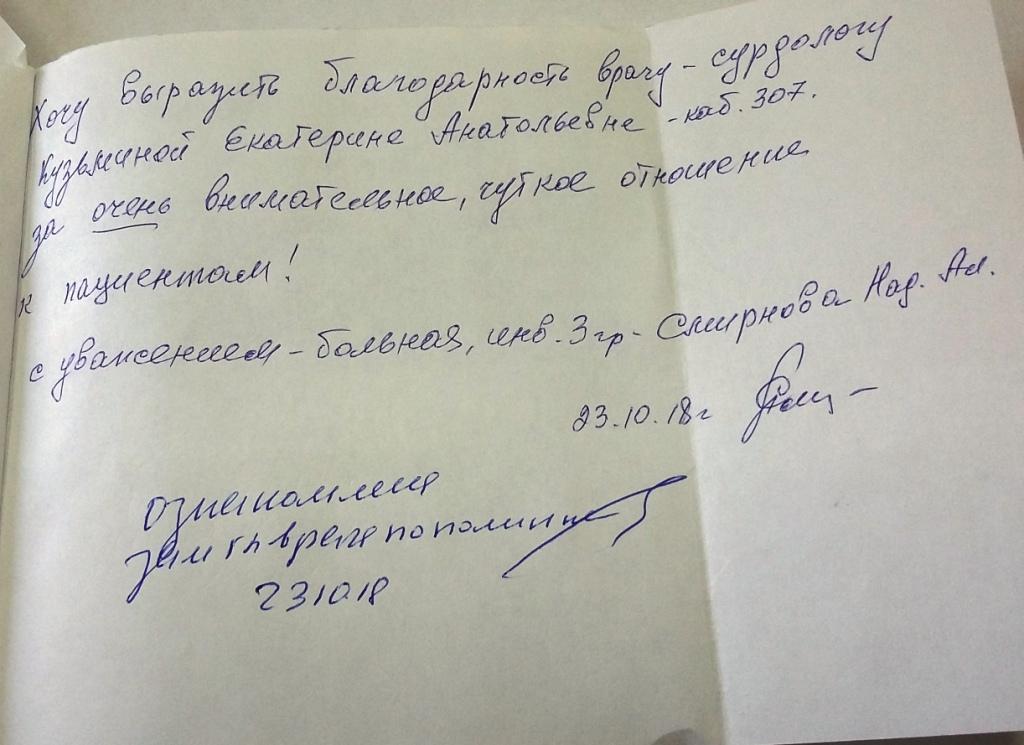 Хочу выразить благодарность врачу - сурдологу
Кузьминой Екатерине Анатольевне - каб. 307.
за очень внимательное, чуткое отношение
к пациентам!
с уважением - больная, инв. 3 гр - Смирнова Над. Ал.
23.10.18 г
зам гл врача по
231018